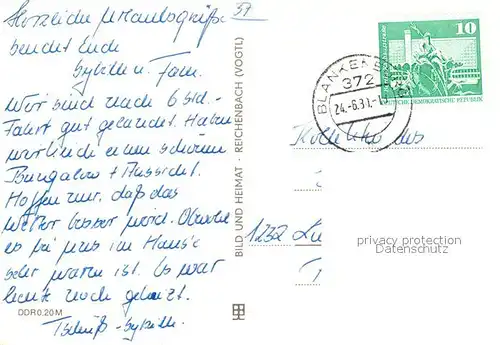 Herzliche Urlaubsgrüße
sendet Euch
Sybille u. Fam.
Wir sind nach 6 Std.-
Fahrt gut gelandet. Haben
wirklich einen schönen
Bungalow + Aussicht.
Hoffen nur, daß das
Wetter besser wird. Obwohl
es bei uns im Hause
sehr warm ist. Es war
heute noch geheizt.
Tschüß - Sybille.
DDR 0,20 M
BILD UND HEIMAT · REICHENBACH (VOGTL)
10
DEUTSCHE DEMOKRATISCHE REPUBLIK
372
24.-6.81.-
1232
privacy protection
Datenschutz